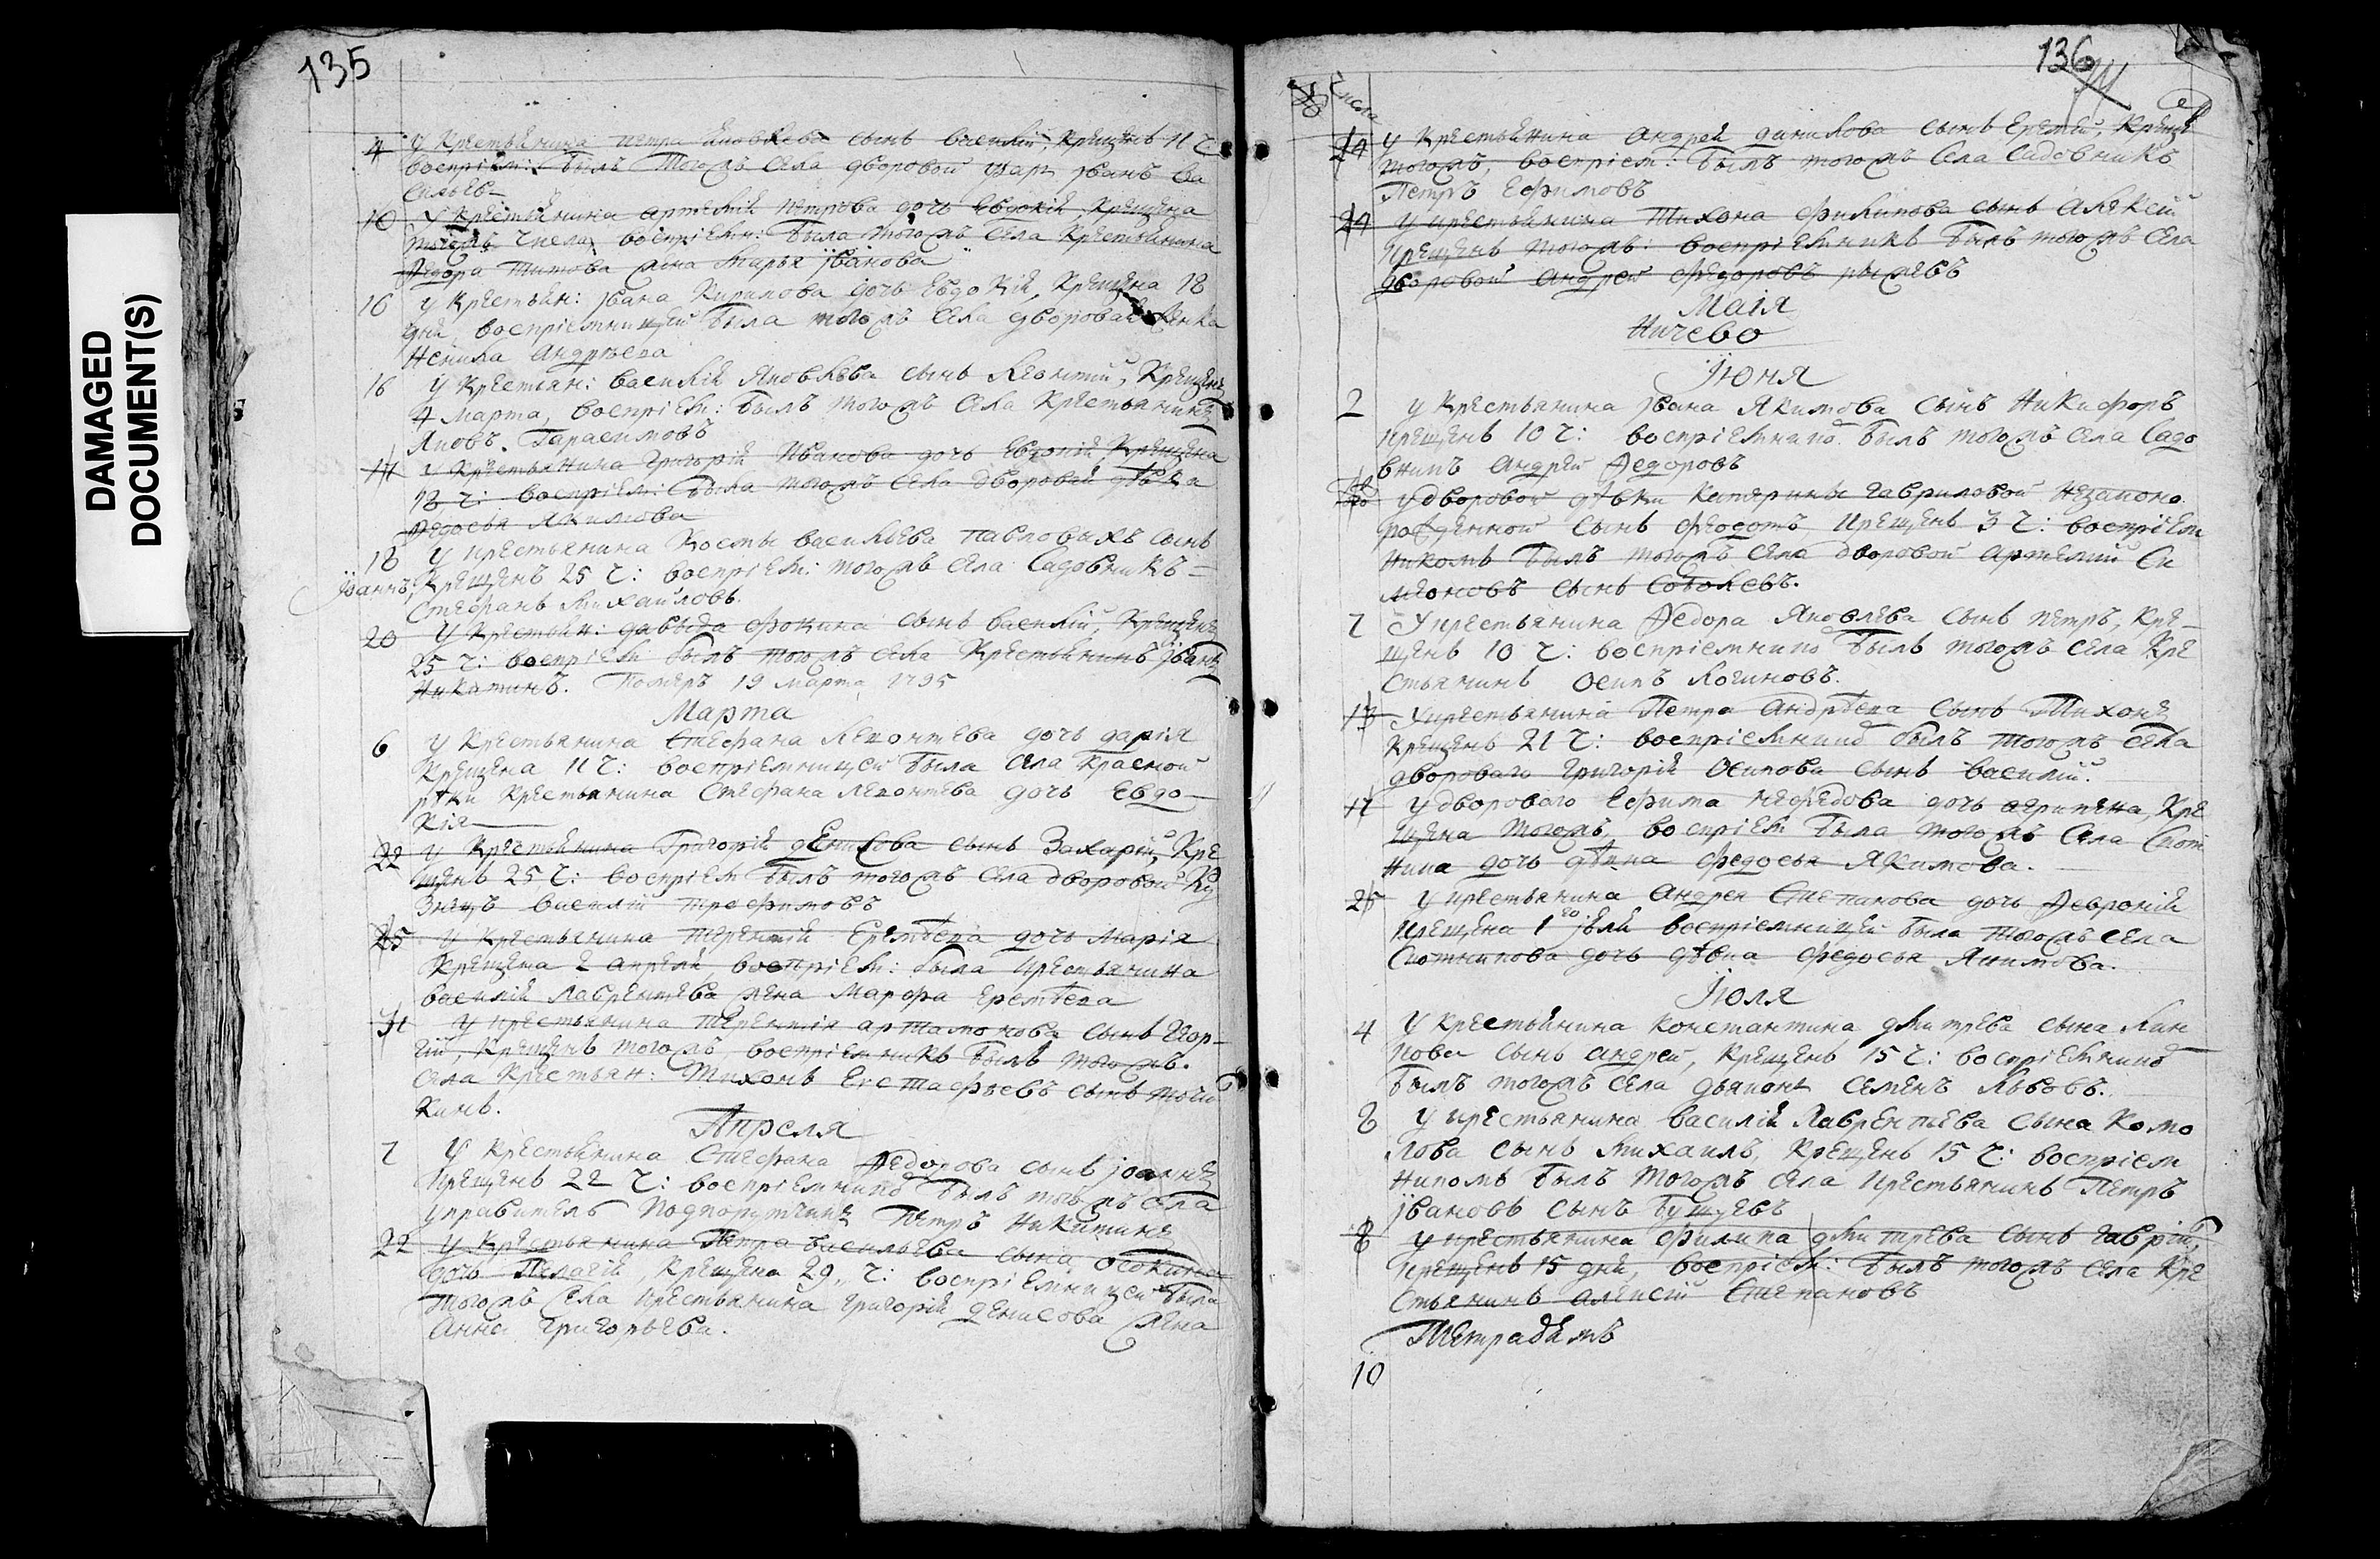 DAMAGED
DOCUMENT(S)
135
4 У Крестьянина петра Яковлева сынъ василий, Крещенъ 11 ч
воспріем: былъ тогожъ села дворовой іванъ ва
сильев
10 У Крестьянина артемія петрова дочь Евдокія, Крещена
тогожъ числа, воспріем: была тогожъ села Крестьянина
Федора титова жена марья іванова
16 У Крестьян: івана Кирилова дочь Евдокія, Крещена 18
дня, воспріемницей была тогожъ села дворовая женка
Ненила андреева
16 У Крестьян: василія Яковлева сынъ леонтий, Крещенъ
4 марта, воспріем: былъ тогожъ села Крестьянинъ
Яковъ Гарасимовъ
17 У Крестьянина Григорія Иванова дочь Евдокія, Крещена
18 ч: воспріем: была тогожъ села дворовая дѣвка
Федосья Якимова
18 У крестьянина Косты васильева павловыхъ сынъ
Іоаннъ, Крещенъ 25 ч: воспріем: тогожъ села Садовникъ
Стефанъ михайловъ.
20 У Крестьян: давыда фокина сынъ василий, Крещенъ
25 ч: воспріем былъ тогожъ села Крестьянинъ іванъ
Никитинъ. Померъ 19 марта 1795
Марта
6 У Крестьянина Стефана леконтева дочь дарія
Крещена 11 ч: воспріемницей была села Красной
рѣки Крестьянина Стефана леконтева дочь Евдо
кія
22 У Крестьянина Григорія денисова сынъ Захарій, Кре
щенъ 25 ч: воспріем былъ тогожъ села дворовой Ку
знецъ василий трофимовъ
25 У Крестьянина терентія Еремѣева дочь марія
Крещена 2 апреля, воспріем: была крестьянина
василія лаврентева жена Марфа Еремѣева
31 У крестьянина терентія артамонова сынъ Егор
ій, Крещенъ тогожъ, воспріемникъ былъ тогожъ
села Крестьян: Тихонъ Евстафьевъ сынъ
кинъ.
Апреля
7 У Крестьянина Стефана Федорова сынъ іоаннъ
Крещенъ 22 ч: воспріемнико былъ тогожъ села
управитель Подпорутчикъ Петръ Никитинъ
22 У Крестьянина Петра васильева сына осокина
дочь Пелагія, Крещена 29 ч: воспріемницей была
тогожъ села Крестьянина григорія денисова жена
Анна Григорьева.
136
Числа
24 У Крестьянина андрея данилова сынъ Еремѣй, Креще
тогожъ, воспріем: былъ тогожъ села садовникъ
Петръ Ефимовъ
24 У крестьянина Тихона филипова сынъ алексей
Крещенъ тогожъ: воспріемникъ былъ тогожъ села
дворовой андрей федоровъ рыжевъ
Маія
Ничево
Іюня
2 У Крестьянина івана Якимова сынъ Никифоръ
крещенъ 10 ч: воспріемнико былъ тогожъ села Садо
вникъ андрей Федоровъ
У дворовой дѣвки катерины гавриловой незаконо
рожденной сынъ феодотъ, Крещенъ 3 ч: воспріем
никомъ былъ тогожъ села дворовой артемий Си
меоновъ сынъ соболевъ.
7 У крестьянина Федора Яковлева сынъ петръ, Кре
щенъ 10 ч: воспріемнико былъ тогожъ села Кре
стьянинъ осипъ логиновъ.
13 У крестьянина Петра андрѣева сынъ Тихонъ
Крещенъ 21 ч: воспріемнико былъ тогожъ села
дворового григорія осипова сынъ василий.
17 У дворового Ефима нефедова дочь агрипена, Кре
щена тогожъ, воспріем была тогожъ села Скот
ника дочь дѣвка федосья Якимова.
25 У крестьянина андрея Степанова дочь Февронія
крещена 1го іюля воспріемницей была тогожъ села
Скотникова дочь дѣвка федосья Якимова.
Іюля
4 У Крестьянина константина дмитрева сына лин
кова сынъ андрей, Крещенъ 15 ч: воспріемнико
былъ тогожъ села дьяконъ семенъ львовъ.
8 У крестьянина василія лаврентева сына комо
лова сынъ михаилъ, Крещенъ 15 ч: воспріем
никомъ былъ тогожъ села крестьянинъ Петръ
івановъ сынъ бущуевъ
8 У крестьянина филипа дмитрева сынъ гаврій,
крещенъ 15 дня, воспріем: былъ тогожъ села Кре
стьянинъ алексей Степановъ
10